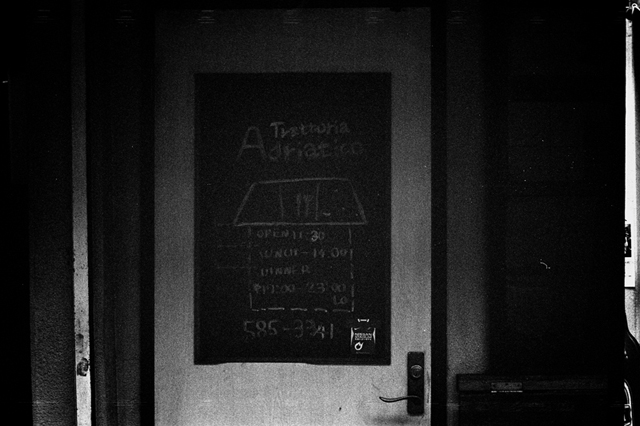 Trattoria
Adriatico
OPEN 11:30
LUNCH - 14:00
DINNER
17:00 - 23:00
LO
585-3341